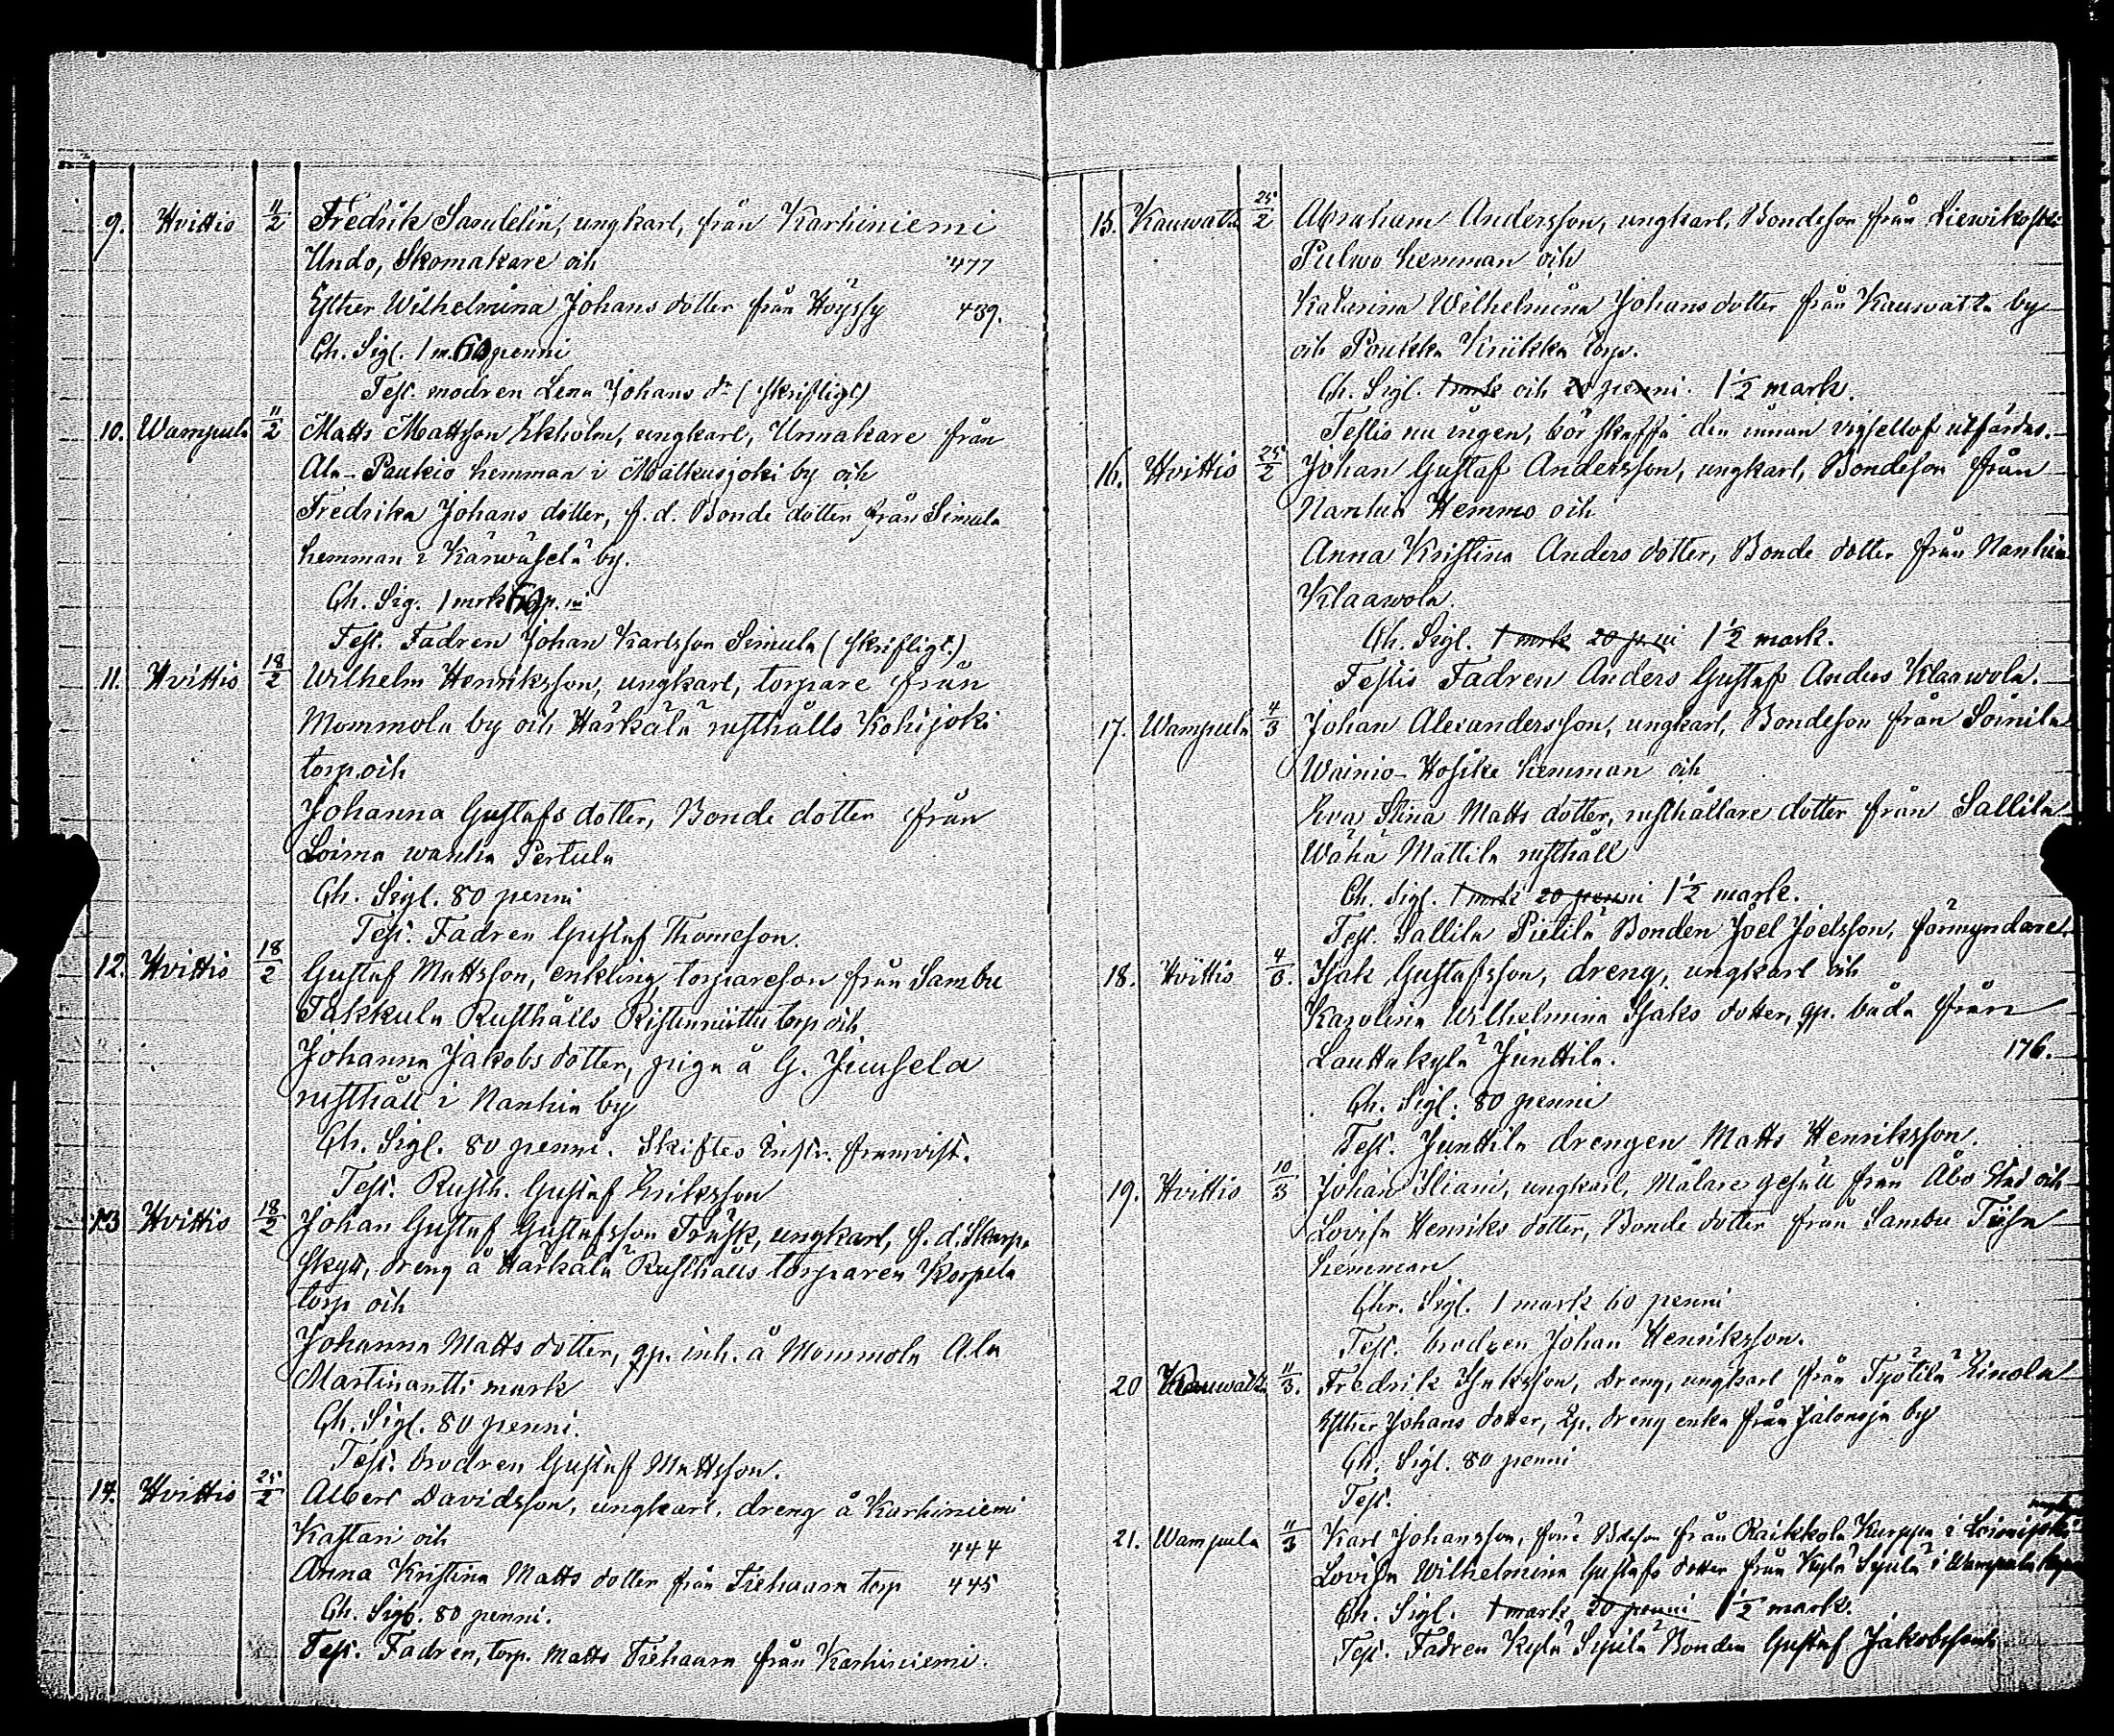 9. Hvittis 11/2 Fredrik Samlelin, ungkarl, från Karhiniemi
Undo, Skomakare och 477
Esther Wilhelmina Johansdotter från Höyssy 439.
Ch. Sigl. 1 m. 60 penni
Test. modren Lena Johans dr (skriftligt)
10. Wampula 11/2 Matts Mattsson Ekholm, ungkarl, Urmakare från
Ala-Paukio hemman i Matkusjoki by och
Fredrika Johans dotter, f. d. Bonde dotter från Simula
hemman i Karwaselä by.
Ch. Sig. 1 mrk 60 p.ni
Test. Fadren Johan Karlsson Simula (skriftligt.)
11. Hvittis 18/2 Wilhelm Henriksson, ungkarl, torpare från
Mommola by och Härkälä rusthålls Kohijoki
torp och
Johanna Gustafs dotter, Bonde dotter från
Loima wanha Pertula
Ch. Sigl. 80 penni
Test. Fadren Gustaf Thomeson.
12. Hvittis 18/2 Gustaf Mattsson, enkling, torpareson från Sambu
Takkula Rusthålls Ristenniittu torp och
Johanna Jakobs dotter, piga å G. Juusela
rusthåll i Nanhia by
Ch. Sigl. 80 penni. Skiftes Instr. framvist.
Test. Rusth. Gustaf Eriksson
13 Hvittis 18/2 Johan Gustaf Gustafsson Träsk, ungkarl, f. d. Skarp-
skytt, dreng å Härkälä Rusthålls torparen Korpela
torp och
Johanna Matts dotter, qp. inh. å Mommola Ala
Martinantti mark
Ch. Sigl. 80 penni.
Test. brodren Gustaf Mattsson.
14. Hvittis 25/2 Albert Davidsson, ungkarl, dreng å Karhiniemi
Kastari och 444
Anna Kristina Matts dotter från Tiehaara torp 445
Ch. Sigl. 80 penni.
Test. Fadren, torp. Matts Tiehaara från Karhiniemi.
15. Kauwatsa 25/2 Abraham Andersson, ungkarl, Bondeson från Liewikoski
Pulwo hemman och
Katarina Wilhelmina Johansdotter från Kauwatsa by
och Poukka Kriikka torp.
Ch. Sigl. 1 mrk och 20 penni. 1 1/2 mark.
Testis nu ingen, bör skaffa den innan vigsellof utfärdas.
16. Hvittis 25/2 Johan Gustaf Andersson, ungkarl, Bondeson från
Nanhia Hemmo och
Anna Kristina Anders dotter, Bonde dotter från Nanhia
Klaawola.
Ch. Sigl. 1 mrk 20 p:ni 1 1/2 mark.
Testis Fadren Anders Gustaf Anders Klaawola.
17. Wampula 4/3 Johan Alexandersson, ungkarl, Bondeson från Soinila
Wainio-Hosike hemman och
Eva Stina Matts dotter, rusthållare dotter från Sallila
Wähä Mattila rusthåll
Ch. Sigl. 1 mrk 20 penni 1 1/2 mark.
Test. Sallila Pietilä Bonden Joel Joelsson, förmyndare.
18. Hvittis 4/3. Isak Gustafsson, dreng, ungkarl och
Karolina Wilhelmina Isaks dotter, qp. båda från
Lauttakylä Junttila. 176.
Ch. Sigl. 80 penni
Test. Junttila drengen Matts Henriksson.
19. Hvittis 10/3 Johan Iliani, ungkarl, Målaregesäll från Åbo Stad och
Lovisa Henriks dotter, Bonde dotter från Sambu
hemman
Chr. Sigl. 1 mark 60 penni
Test. brodren Johan Henriksson.
20 Kauwatsa 11/3. Fredrik Isaksson, dreng, ungkarl från Työtilä Einola
Esther Johans dotter, Ep. dreng enka från Jalonoja by
Ch. Sigl. 80 penni
Test.
21. Wampula 11/3 Karl Johansson, Bdeson från Raikkola Kurppa i
Lovisa Wilhelmina Gustafs dotter från Kylä Sepula i Wampula
Ch. Sigl. 1 mark 20 penni 1 1/2 mark.
Test. Fadren Kylä Bonden Gustaf Jakobsson